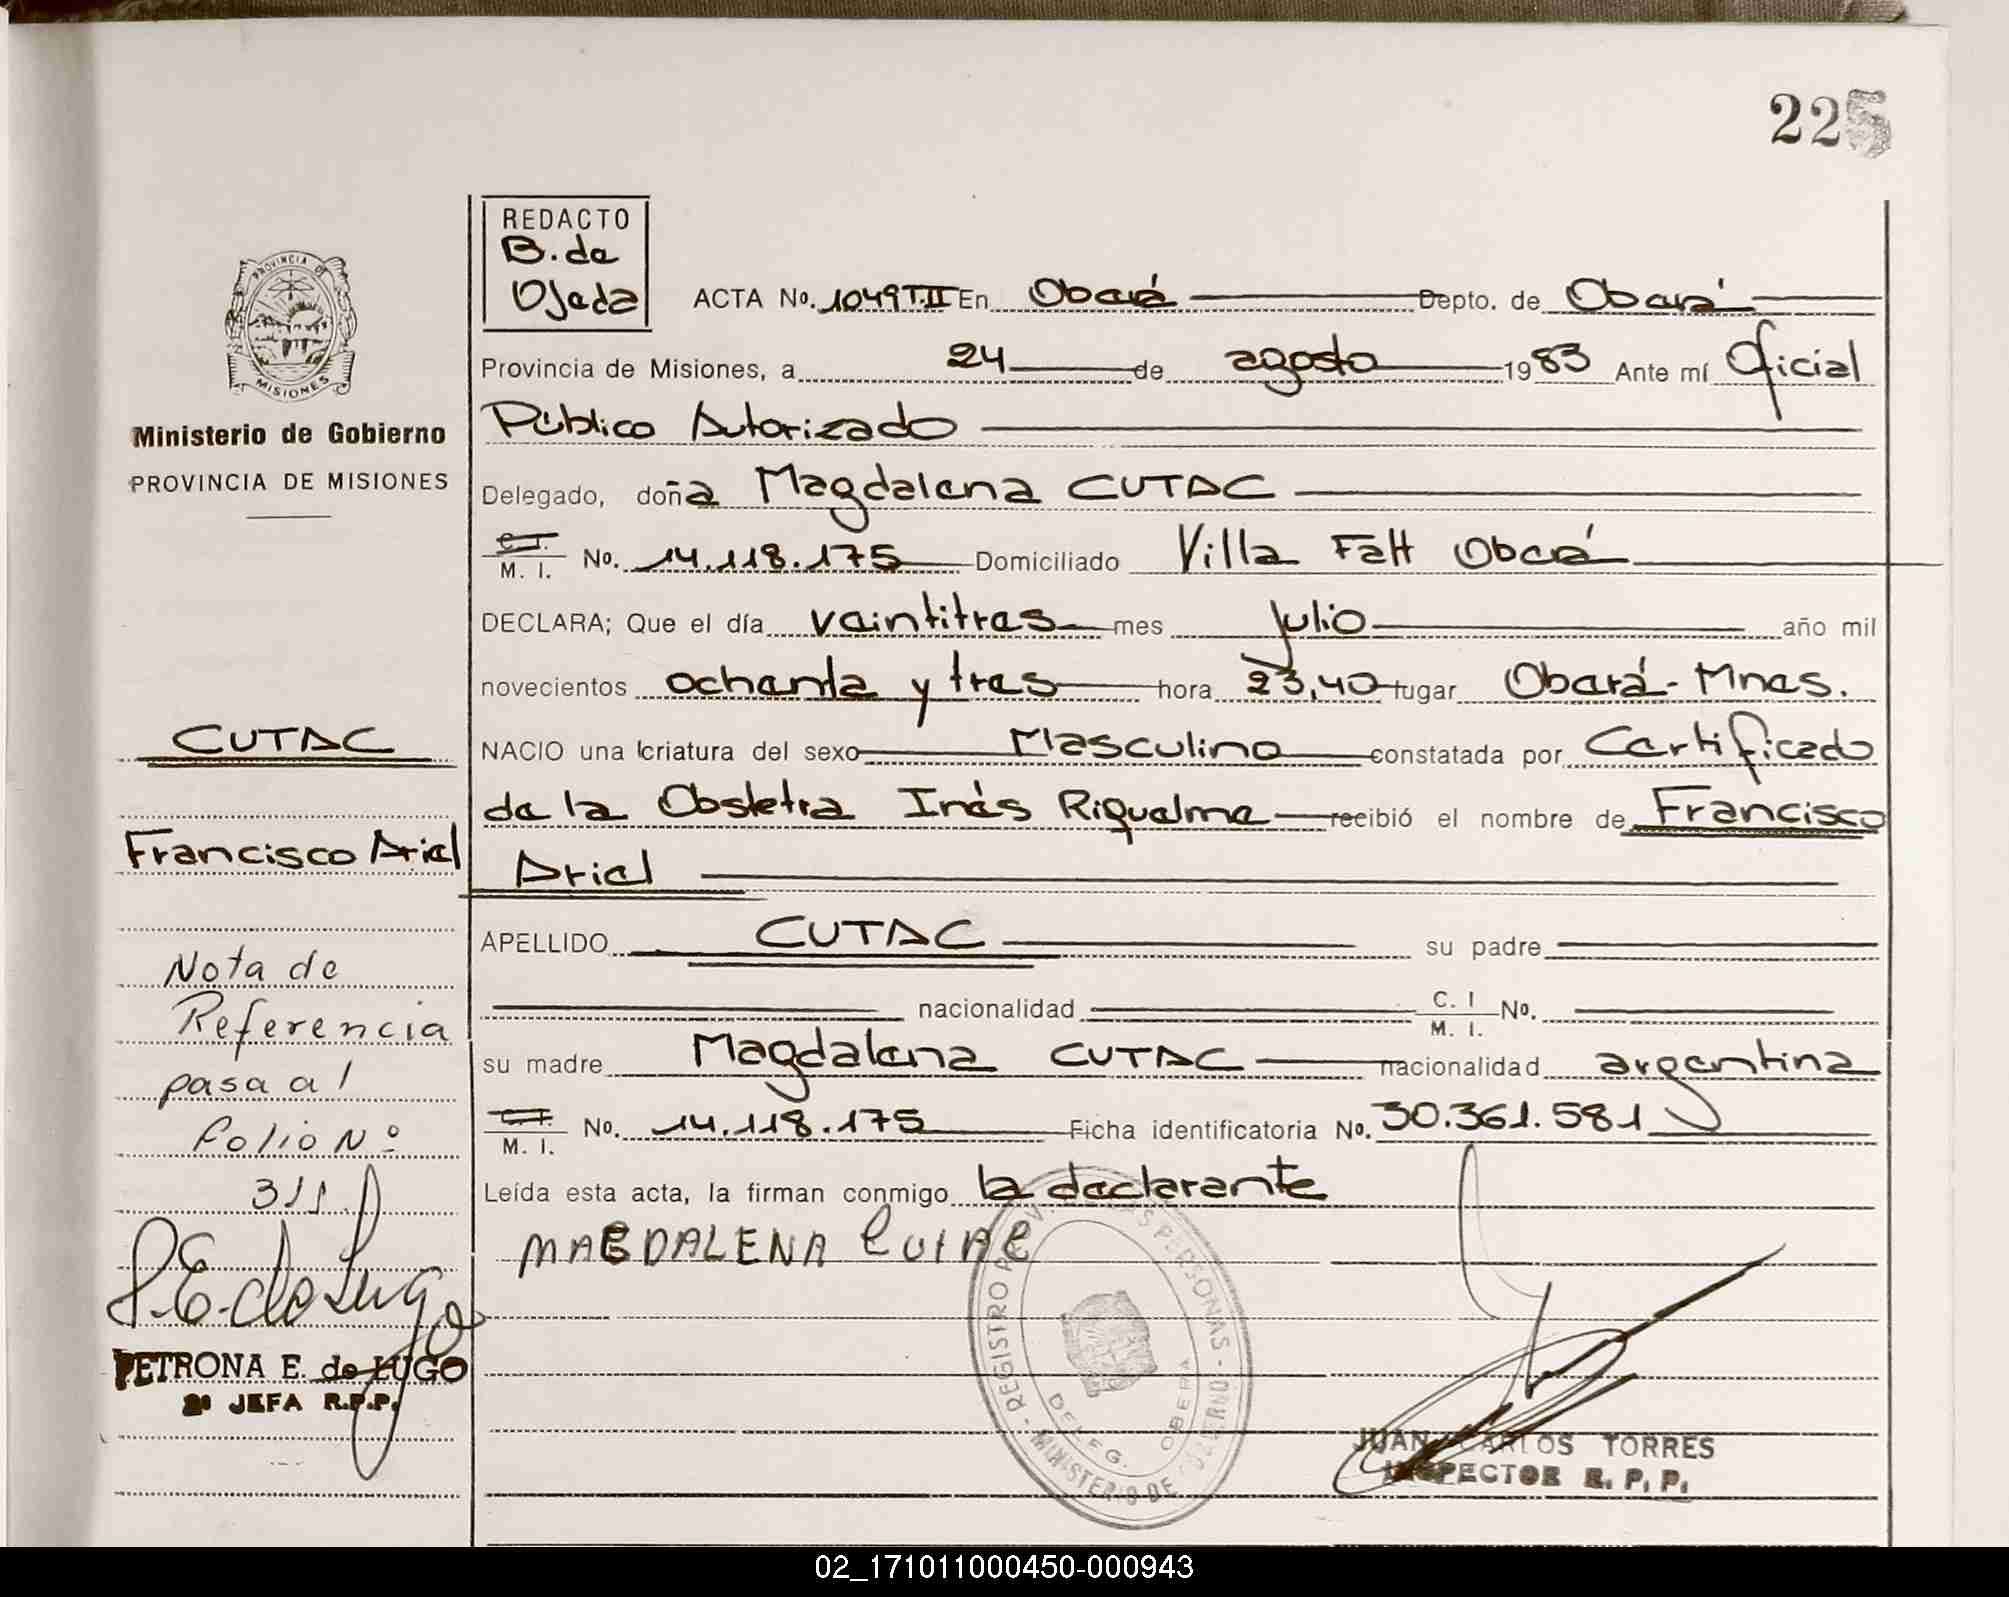 225
REDACTO
B. de
Ojeda
ACTA No. 1049 T.II En Oberá Depto. de Oberá
Provincia de Misiones, a 24 de agosto 1983 Ante mí Oficial
Público Autorizado
Delegado, doña Magdalena CUTAC
C.I. M. I. No. 14.118.175 Domiciliado Villa Falt Oberá
DECLARA; Que el día veintitres mes julio año mil
novecientos ochenta y tres hora 23,40 lugar Oberá - Mnes.
NACIO una criatura del sexo Masculino constatada por Certificado
de la Obstetra Inés Riquelme recibió el nombre de Francisco
Ariel
APELLIDO CUTAC su padre
nacionalidad C. I M. I. No.
su madre Magdalena CUTAC nacionalidad argentina
C.I. M. I. No. 14.118.175 Ficha identificatoria No. 30.361.581
Leída esta acta, la firman conmigo la declarante
MAGDALENA CUTAC
REGISTRO PROV. DE LAS PERSONAS - MINISTERIO DE GOBIERNO -
DELEG. OBERA
JUAN CARLOS TORRES
INSPECTOR R. P. P.
PROVINCIA DE
MISIONES
Ministerio de Gobierno
PROVINCIA DE MISIONES
CUTAC
Francisco Ariel
Nota de
Referencia
pasa al
folio Nº
311
P. E. de Lugo
PETRONA E. de LUGO
2º JEFA R.P.P.
02_171011000450-000943